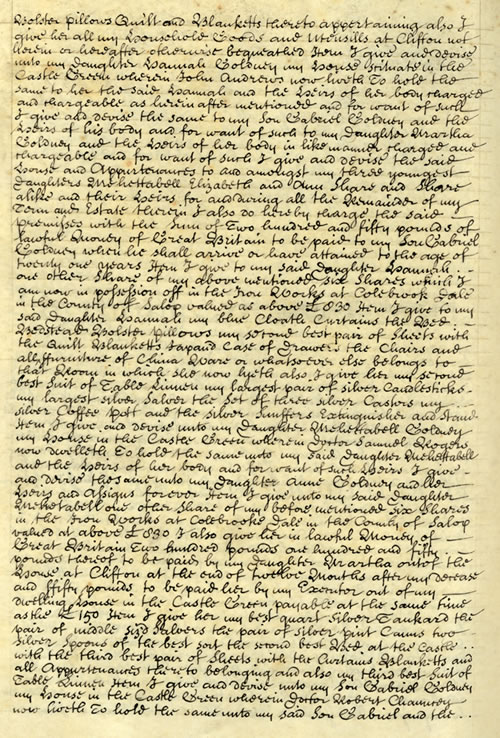 Bolster Pillows Quilt and Blanketts thereto appertaining also I
give her all my Household Goods and Utensills at Clifton not
herein or hereafter otherwise bequeathed Item I give and devise
unto my Daughter Hannah Goldney my House Scituate in the
Castle Green wherein John Andrews now liveth To hold the
same to her the said Hannah and the Heirs of her body charged
and chargeable as herein after mentioned and for want of such
I give and devise the same to my Son Gabriel Goldney and the
Heirs of his body and for want of such to my Daughter Martha
Goldney and the Heirs of her body in like manner charged and
chargeable and for want of such I give and devise the said
House and Appurtenances to and amongst my three youngest
Daughters Mehettabell Elizabeth and Ann Share and Share
alike and their Heirs for and during all the Remainder of my
Term and Estate therein I also do hereby charge the said
premisses with the Sum of Two hundred and fifty pounds of
lawful Money of Great Britain to be paid to my Son Gabriel
Goldney when he shall arrive or have attained to the age of
twenty one years Item I give to my said Daughter Hannah
one other Share of my above mentioned six Shares which I
am now in possession off in the Iron Works at Colebrook Dale
in the County off Salop valued as above £830 Item I give to my
said Daughter Hannah my blue Cloath Curtains the Bed
Bedstead Bolster Pillows my second best pair of Sheets with
the Quilt Blanketts Japand Case of Drawers the Chairs and
all furniture of China Ware or whatsoever else belongs to
that Room in which she now lyeth also I give her my second
best Suit of Table Linnen my largest pair of Silver Candlesticks
my largest Silver Salver the Set of three silver Castors my
Silver Coffee Pott and the Silver Snuffers Extinguisher and Stand
Item I give and devise unto my Daughter Mehettabell Goldney
my House in the Castle Green wherein Doctor Samuel Rogers
now dwelleth To hold the same unto my said Daughter Mehettabell
and the Heirs of her body and for want of such Heirs I give
and devise the same unto my Daughter Anne Goldney and her
Heirs and Assigns forever Item I give unto my said Daughter
Mehettabell one other Share of my before mentioned Six Shares
in the Iron Works at Colebrooke Dale in the County of Salop
valued at above £830 I also give her in lawful Money of
Great Britain Two hundred pounds one hundred and fifty
pounds thereof to be paid by my Daughter Martha out of the
House at Clifton at the end of twelve Months after my decease
and ffifty pounds to be paid her by my Executor out of my
dwelling House in the Castle Green payable at the same time
as the £150 Item I give her my best quart Silver Tankard the
pair of middle sizd Salvers the pair of Silver pint Canns two
silver Spoons of the best sort the second best Bed at the Castle
with the third best pair of Sheets with the Curtains Blanketts and
all Appurtenances thereto belonging and also my third best Suit of
Table Linnen Item I give and devise unto my Son Gabriel Goldney
my House in the Castle Green wherein Doctor Robert Chauncey
now liveth To hold the same unto my said Son Gabriel and the